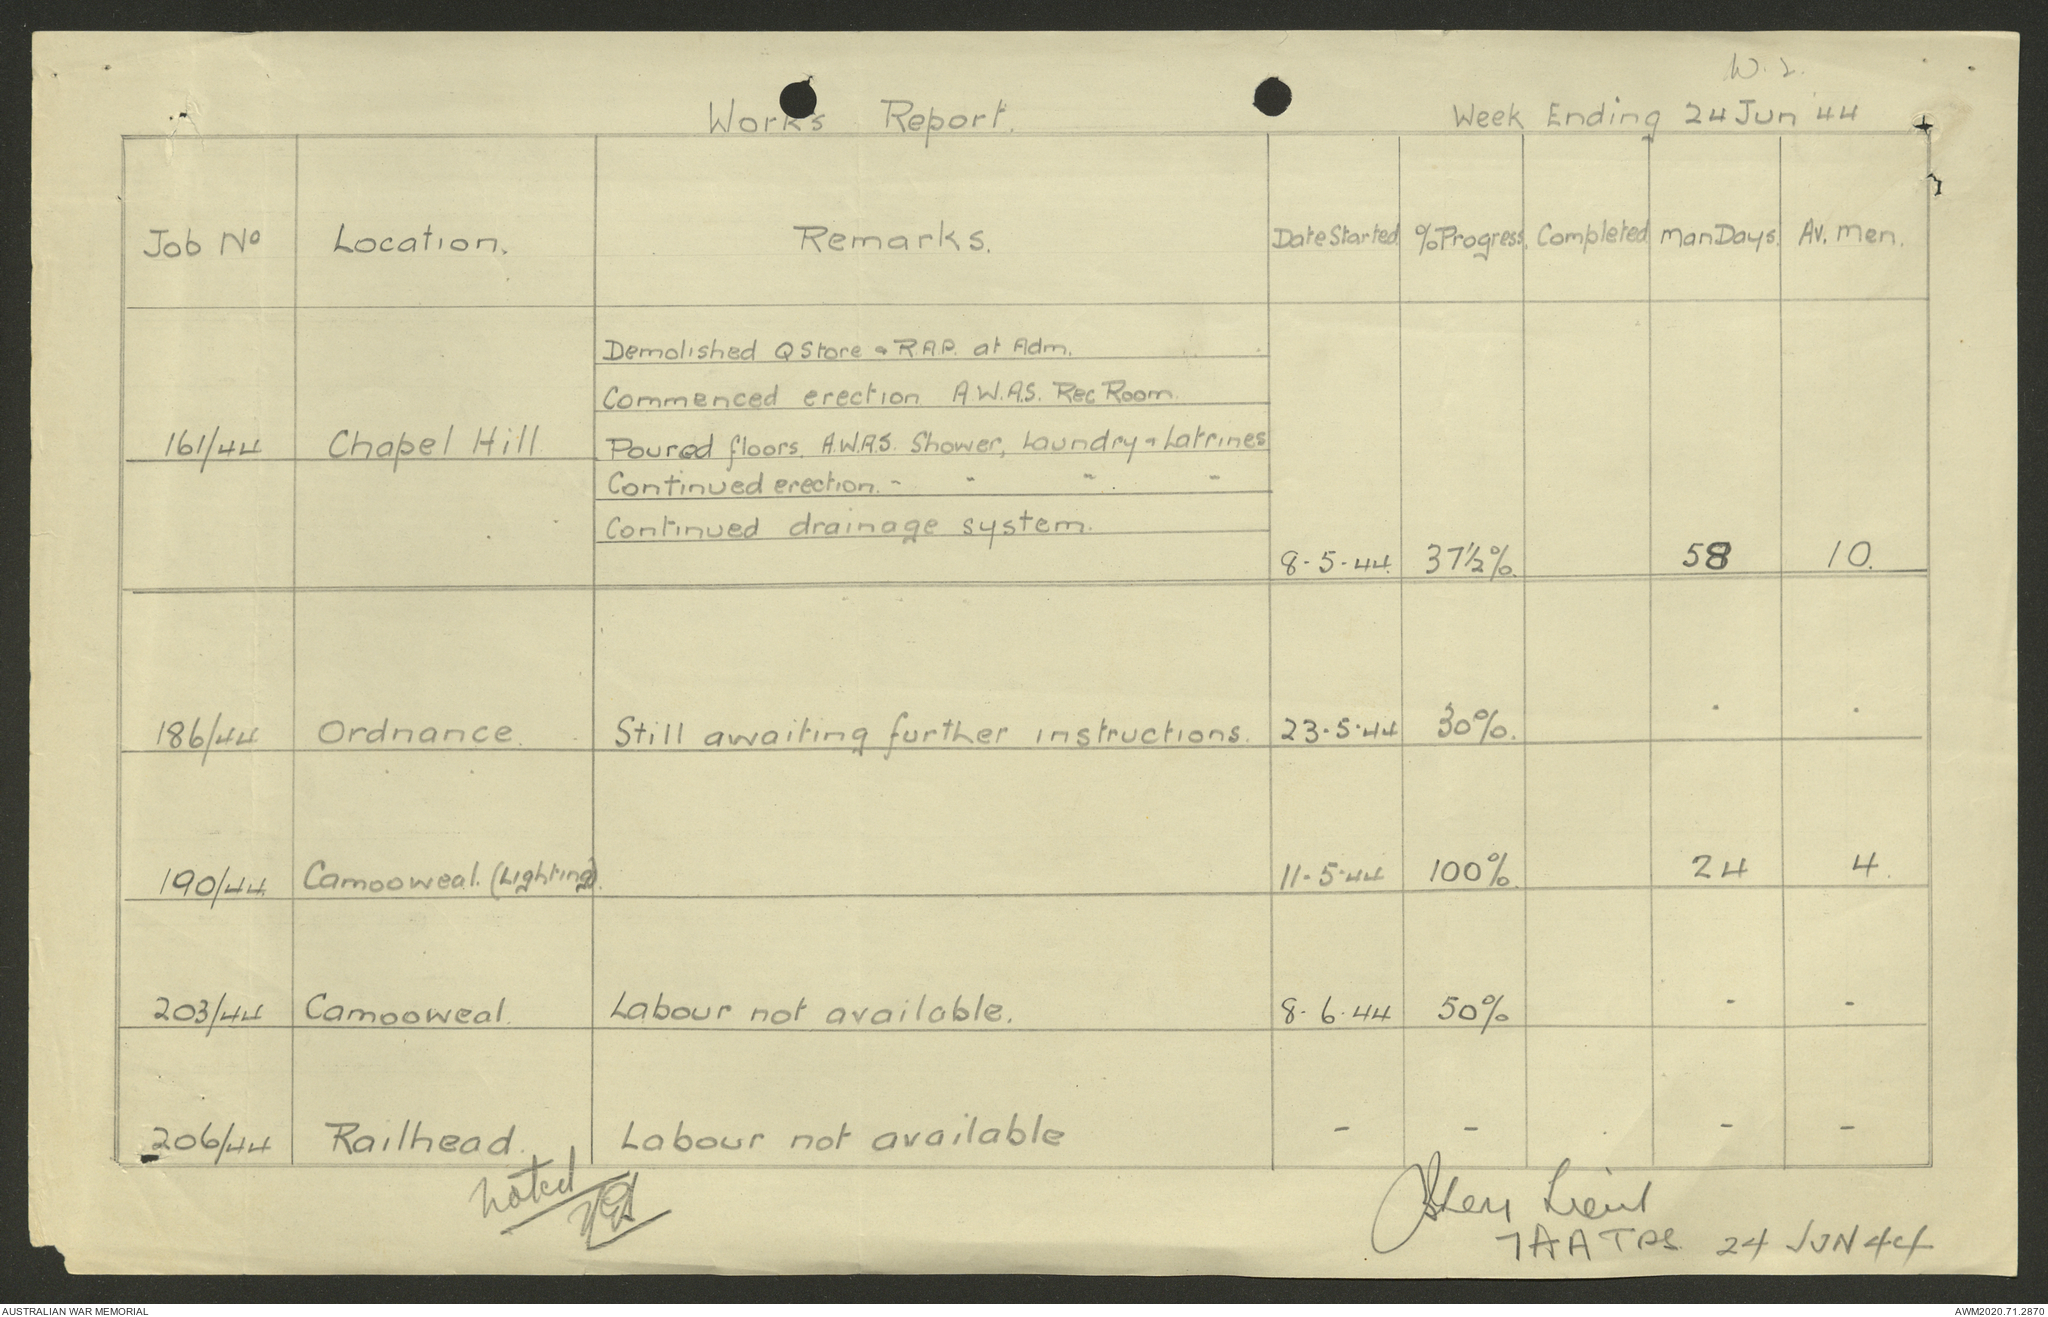 W. 2.
Works Report. Week Ending 24 Jun 44
Job No Location. Remarks. Date Started % Progress. Completed Man Days. Av. Men.
Demolished Q Store & R.A.P. at Adm.
Commenced erection A.W.A.S. Rec Room.
161/44 Chapel Hill Poured floors. A.W.A.S. Shower, Laundry & Latrines
Continued erection. " " " "
Continued drainage system.
8-5-44. 37½%. 58 10.
186/44 Ordnance. Still awaiting further instructions. 23-5-44 30%. - -
190/44 Camooweal. (Lighting). 11-5-44 100%. 24 4.
203/44 Camooweal. Labour not available. 8-6-44 50% - -
206/44 Railhead. Labour not available - - - -
Noted
Lieut
24 JUN 44
AUSTRALIAN WAR MEMORIAL AWM2020.71.2870